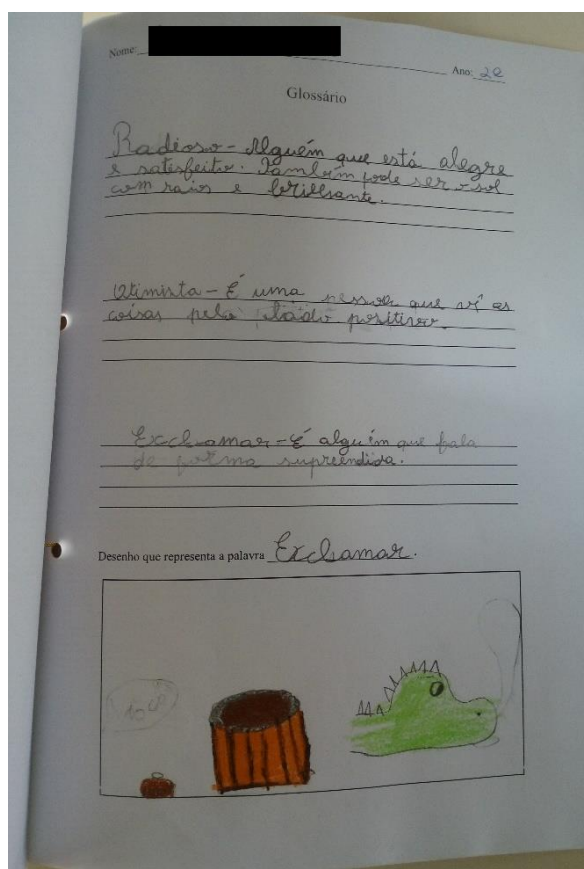 Nome:
Ano: 2º
Glossário
Radioso - Alguém que está alegre
e satesfeito. Também pode ser o sol
com raios e brilhante.
Otimista - É uma pessoa que vê as
coisas pelo lado positivo.
Exclamar - É alguém que fala
de forma supreendida.
Desenho que representa a palavra Exclamar.